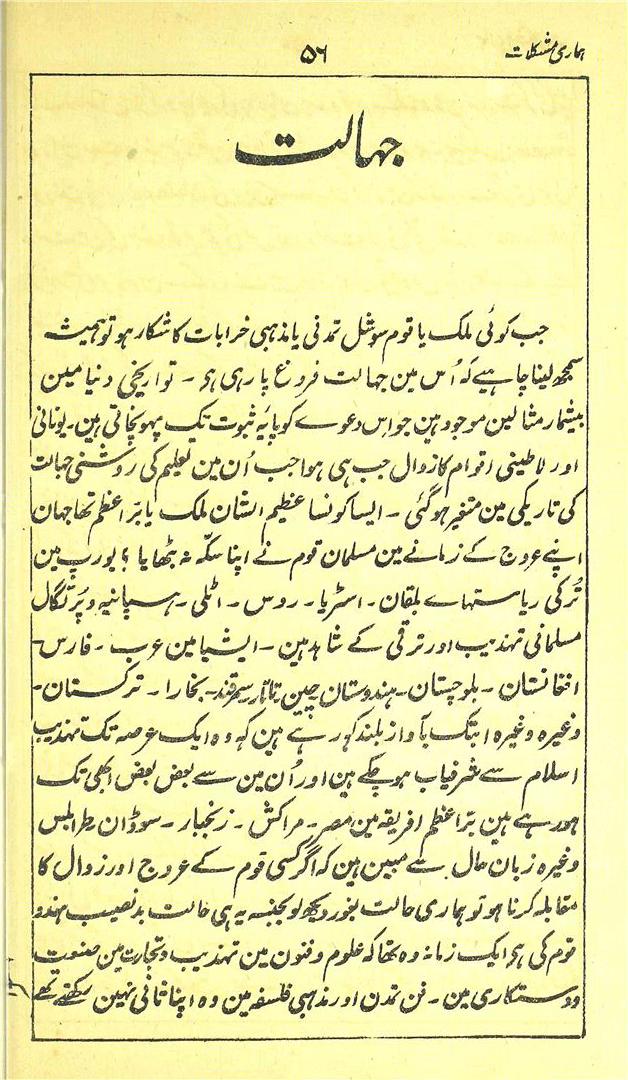 ہماری مشکلات
۵۶
جہالت
جب کوئی ملک یا قوم سوشل تمدنی یا مذہبی خرابات کا شکار ہو تو ہمیشہ
سمجھ لینا چاہیے کہ اُس مین جہالت فروغ پا رہی ہی ۔ تواریخی دنیا مین
بیشمار مثالین موجود ہین جو اس دعوے کو پایۂ ثبوت تک پہونچاتی ہین ۔ یونانی
اور لاطینی اقوام کا زوال جب ہی ہوا جب اُن مین تعلیم کی روشنی جہالت
کی تاریکی مین متغیر ہوگئی ۔ ایسا کونسا عظیم الشان ملک یا برّاعظم تھا جہان
اپنے عروج کے زمانے مین مسلمان قوم نے اپنا سکّہ نہ بٹھایا ؟ یورپ مین
ٹرکی ریاستہاے بلقان ۔ اسٹریا ۔ روس ۔ اٹلی ۔ ہسپانیہ و پرتگال
مسلمانی تہذیب اور ترقی کے شاہد ہین ۔ ایشیا مین عرب ۔ فارس ۔
افغانستان ۔ بلوچستان ۔ ہندوستان چین تاتار سمرقند ۔ بخارا ۔ ترکستان ۔
وغیرہ وغیرہ ابتک بآواز بلند کہہ رہے ہین کہ وہ ایک عرصہ تک تہذیب
اسلام سے شرفیاب ہو چکے ہین اور اُن مین سے بعض بعض ابھی تک
ہو رہے ہین برّاعظم افریقہ مین مصر ۔ مراکش ۔ زنجبار ۔ سوڈان طرابلس
وغیرہ زبان حال سے مبین ہین کہ اگر کسی قوم کے عروج اور زوال کا
مقابلہ کرنا ہو تو ہماری حالت بغور دیکھ لو بجنسہ یہ ہی حالت بدنصیب ہندو
قوم کی ہی ایک زمانہ وہ تھا کہ علوم و فنون مین تہذیب و تجارت مین صنعت
و دستکاری مین ۔ فن تمدن اور مذہبی فلسفہ مین وہ اپنا ثانی نہین رکھتے تھے